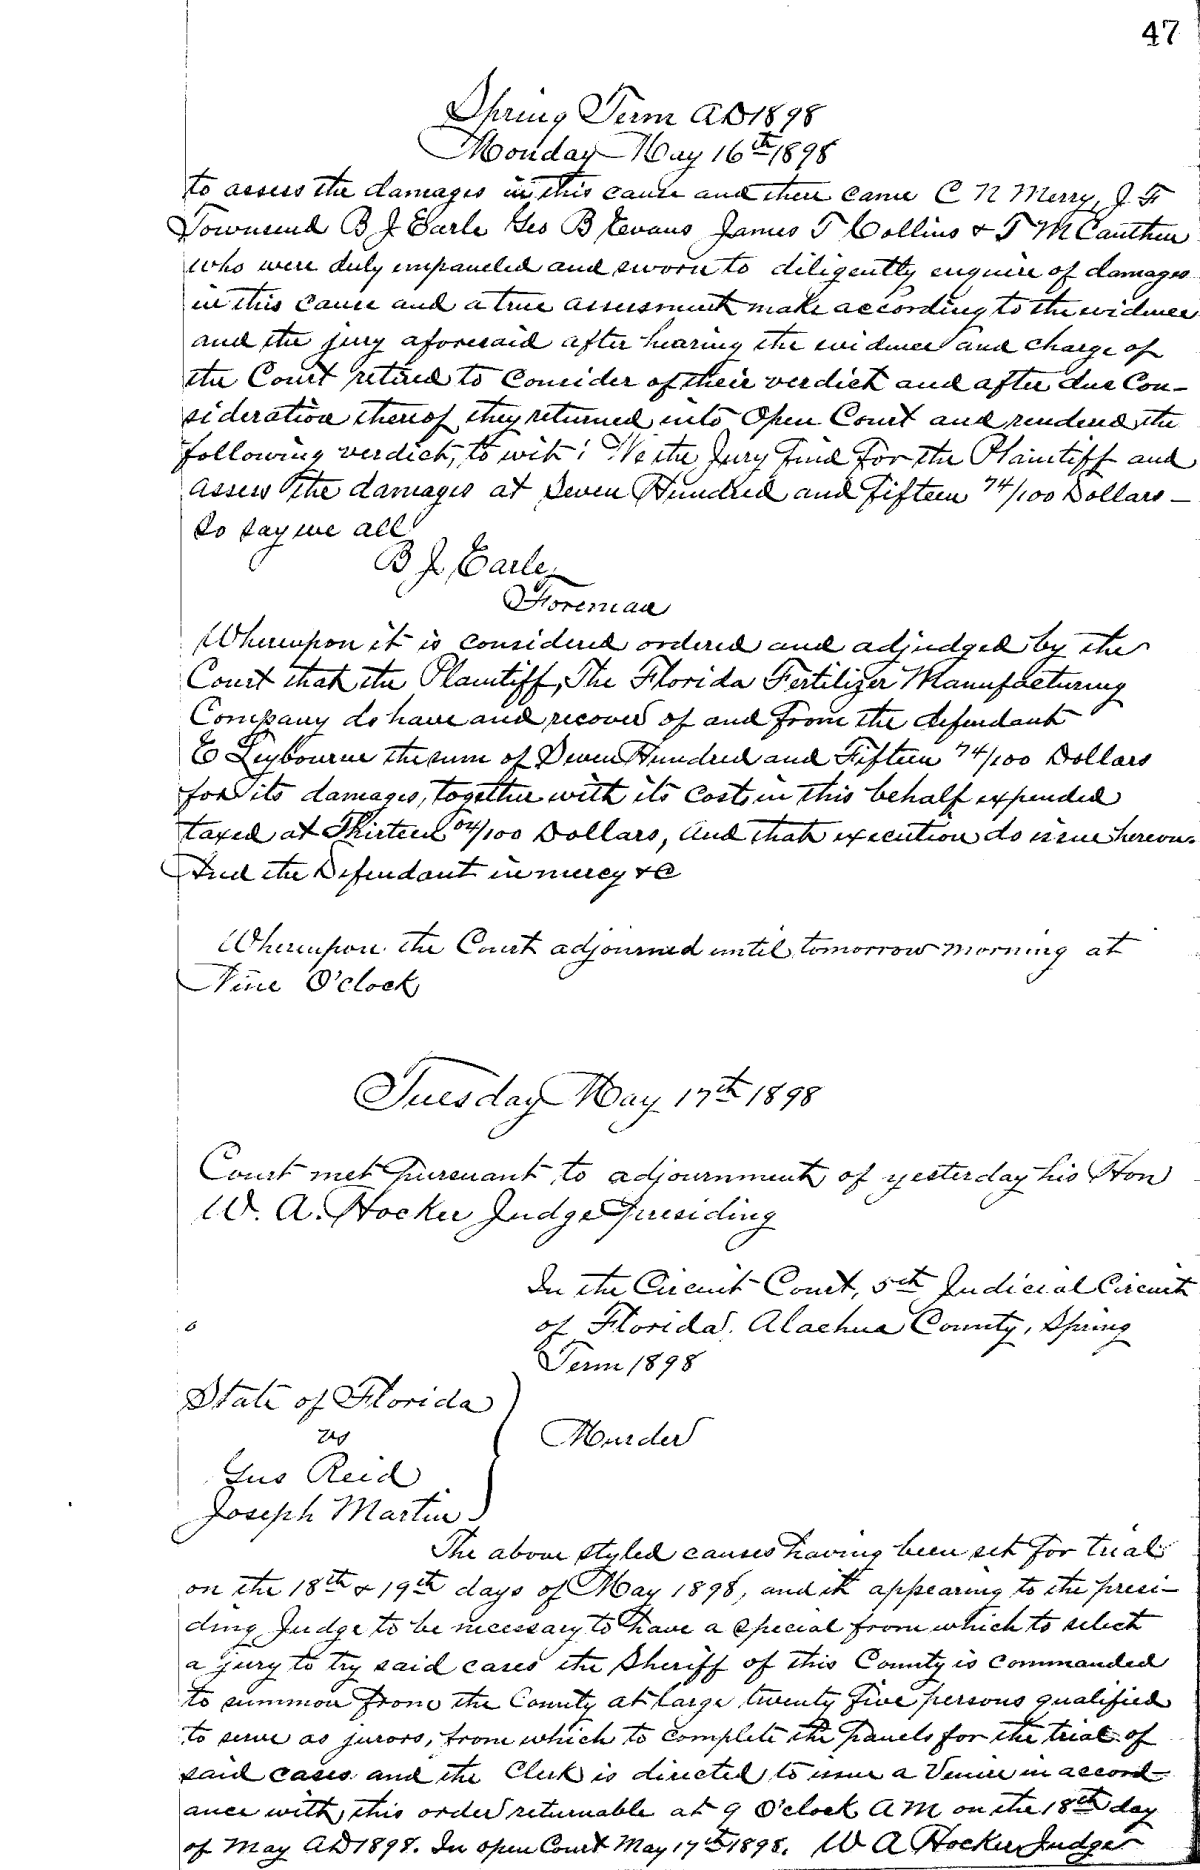 47
Spring Term AD 1898
Monday May 16th 1898
to assess the damages in this cause and there came C N Merry, J. F
Townsend B J Earle Geo B Evans James T Collins & T McCauthen
who were duly empaneled and sworn to diligently enquire of damages
in this cause and a true assessment make according to the evidence
and the jury aforesaid after hearing the evidence and charge of
the Court retired to consider of their verdict and after due Con-
sideration thereof they returned into Open Court and rendered the
following verdict, to wit: We the Jury find For the Plaintiff and
assess the damages at Seven Hundred and Fifteen 74/100 Dollars –
So say we all
B J. Earle
Foreman
Whereupon it is considered ordered and adjudged by the
Court that the Plaintiff, The Florida Fertilizer Manufacturing
Company do have and recover of and From the defendant
E Leybourne the sum of Seven Hundred and Fifteen 74/100 Dollars
for its damages, together with its costs in this behalf expended
taxed at Thirteen 04/100 Dollars, And that execution do issue hereon.
And the Defendant in mercy &C
Whereupon the Court adjourned until tomorrow morning at
Nine O'clock
Tuesday May 17th 1898
Court met pursuant to adjournment of yesterday his Hon
W. A. Hocker Judge presiding
In the Circuit Court, 5th Judicial Circuit
of Florida. Alachua County, Spring
Term 1898
State of Florida
vs
Murder
Gus Reid
Joseph Martin
The above styled causes having been set For trial
on the 18th & 19th days of May 1898, and it appearing to the presi-
ding Judge to be necessary to have a special from which to select
a jury to try said cases the Sheriff of this County is commanded
to summon from the County at large twenty five persons qualified
to serve as jurors, from which to complete the panels for the trial of
said cases and the Clerk is directed to issue a Venire in accord-
ance with this order returnable at 9 O'clock AM on the 18th day
of May AD 1898. In open Court May 17th 1898. W A Hocker Judge